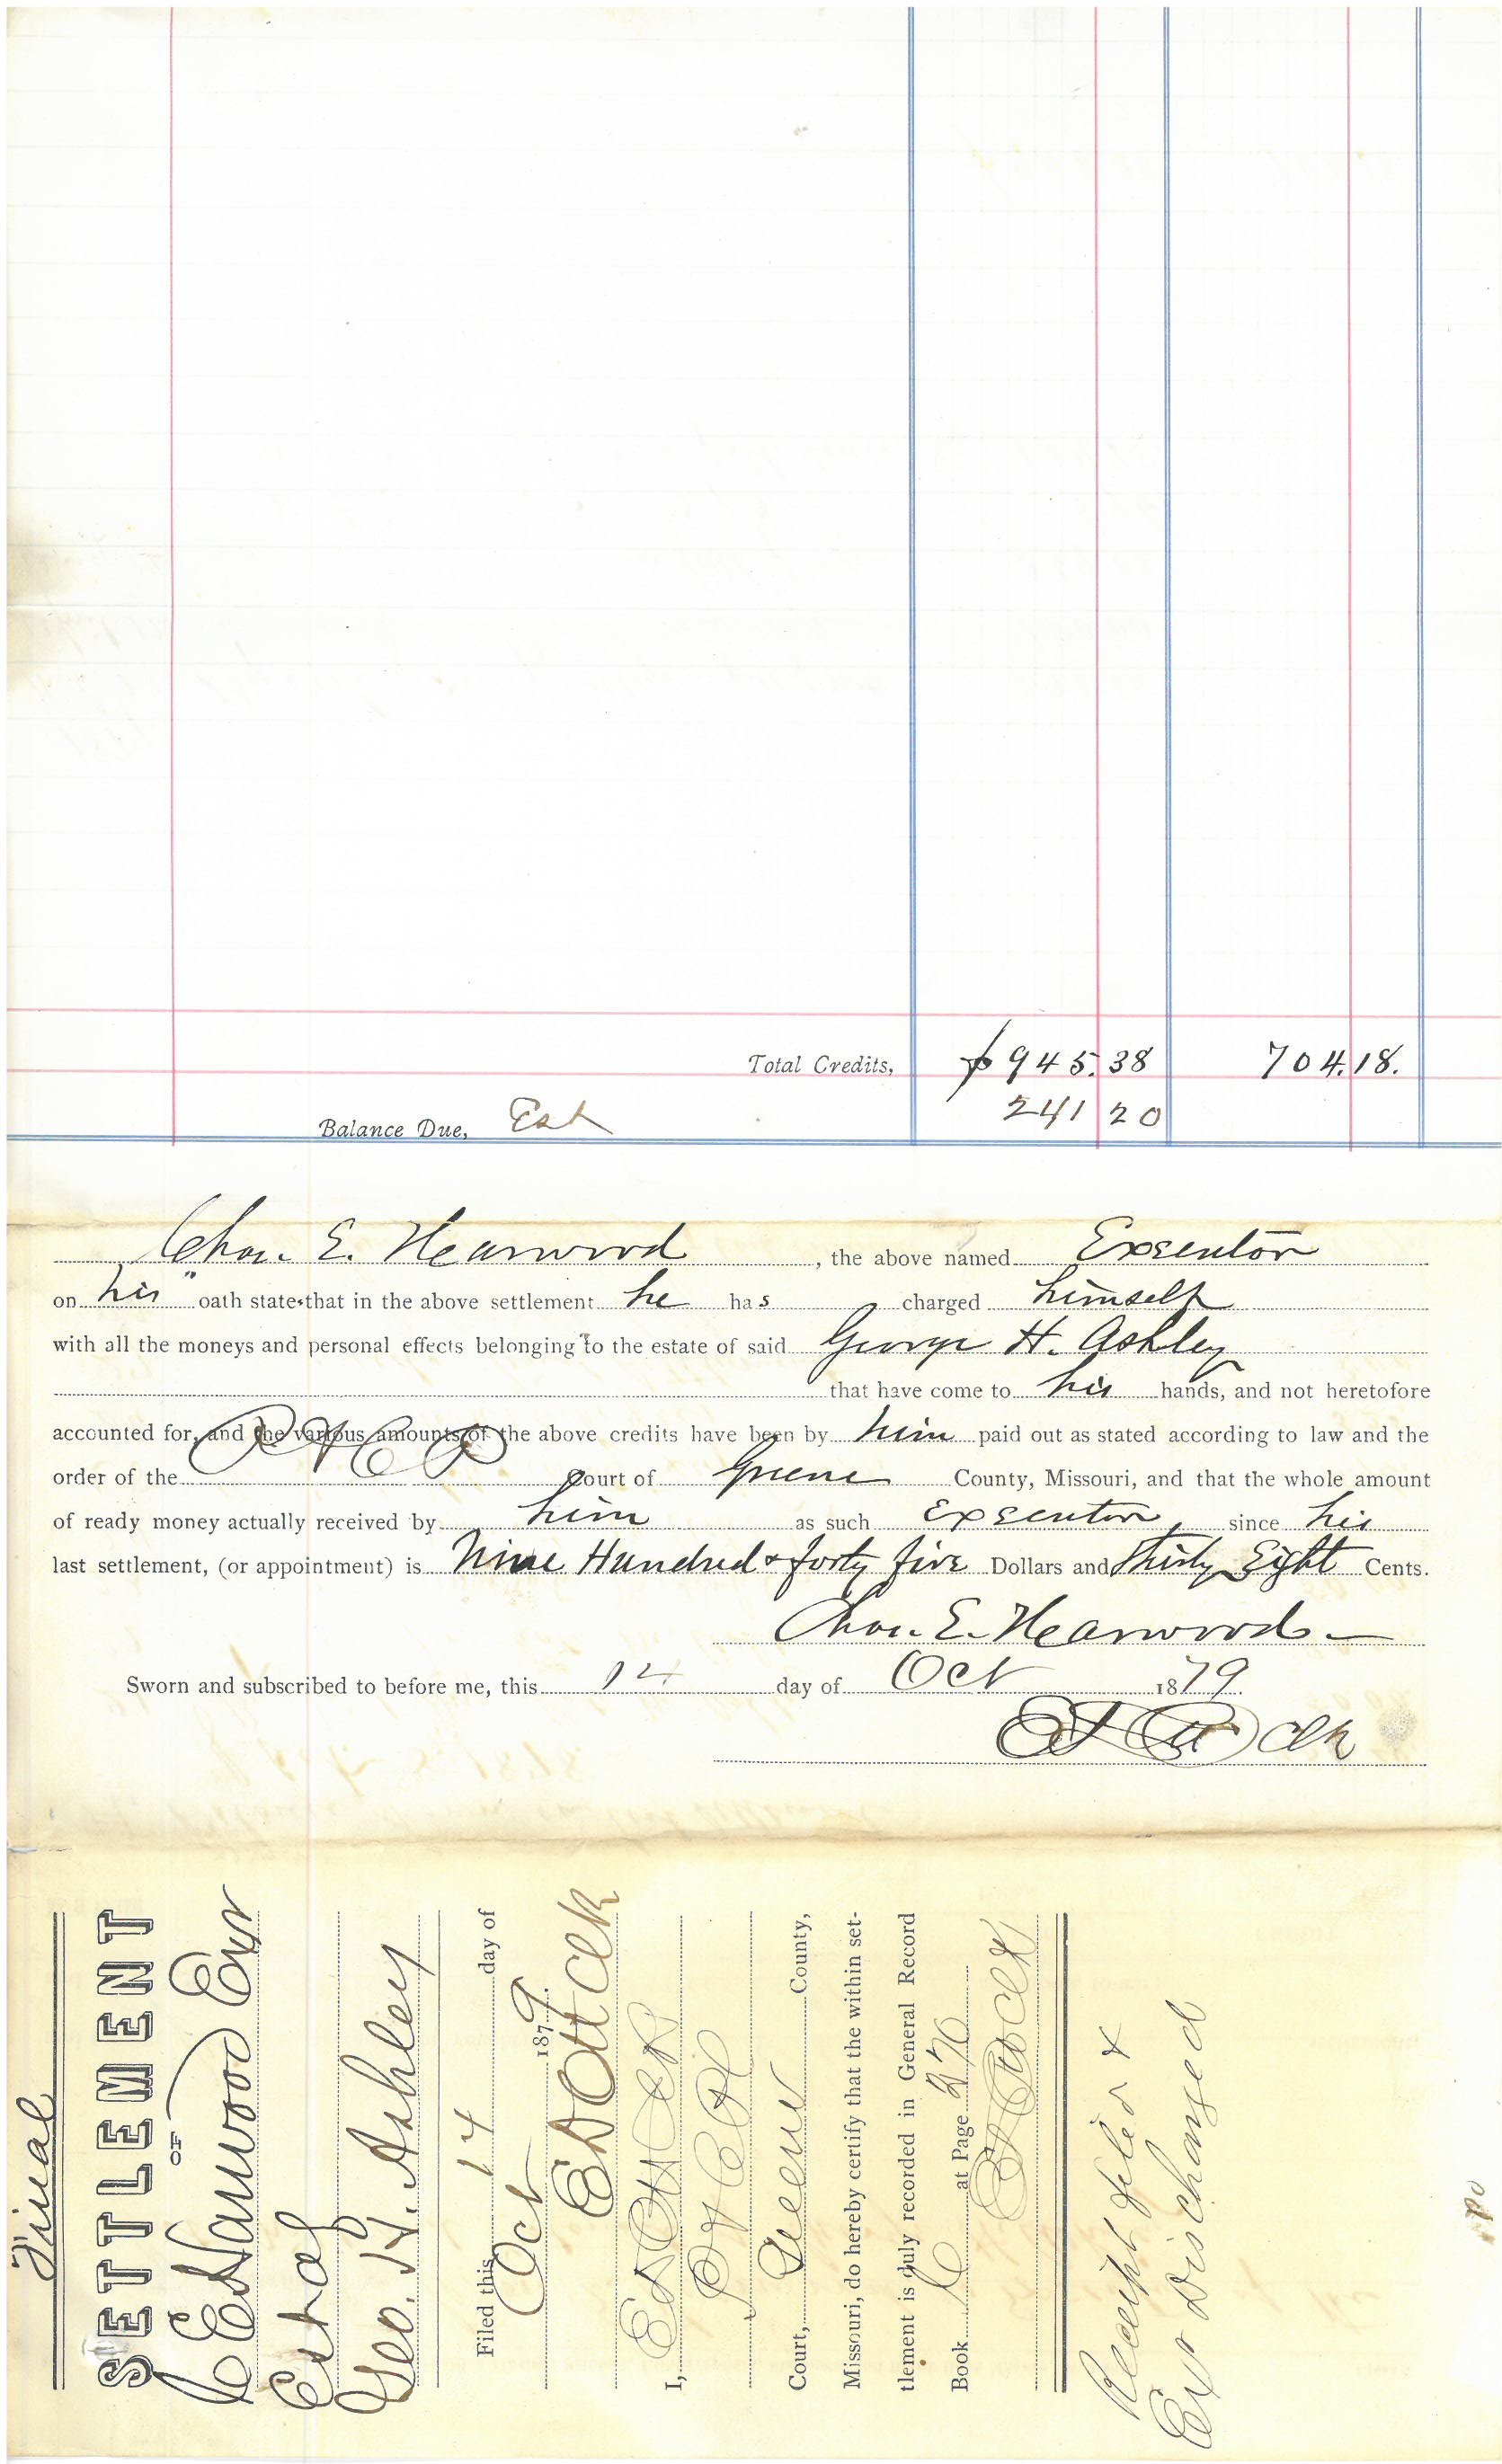 Total Credits, $945.38 704.18.
Balance Due, Est 241 20
Chas. E. Harwood, the above named Executor
on his oath states that in the above settlement he has charged himself
with all the moneys and personal effects belonging to the estate of said George H. Ashley
that have come to his hands, and not heretofore
accounted for, and the various amounts of the above credits have been by him paid out as stated according to law and the
order of the Court of Greene County, Missouri, and that the whole amount
of ready money actually received by him as such Executor, since his
last settlement, (or appointment) is Nine Hundred & forty five Dollars and Thirty Eight Cents.
Chas. E. Harwood
Sworn and subscribed to before me, this 14 day of Oct 1879
Clk
Final
SETTLEMENT
OF
C E Harwood Exr
Est of
Geo. H. Ashley
Filed this 14 day of
Oct 1879.
E D Ott Clk
I, E D Ott Clk
Court, Greene County,
Missouri, do hereby certify that the within set-
tlement is duly recorded in General Record
Book at Page 270
Clk
Receipt filed &
Exr Discharged